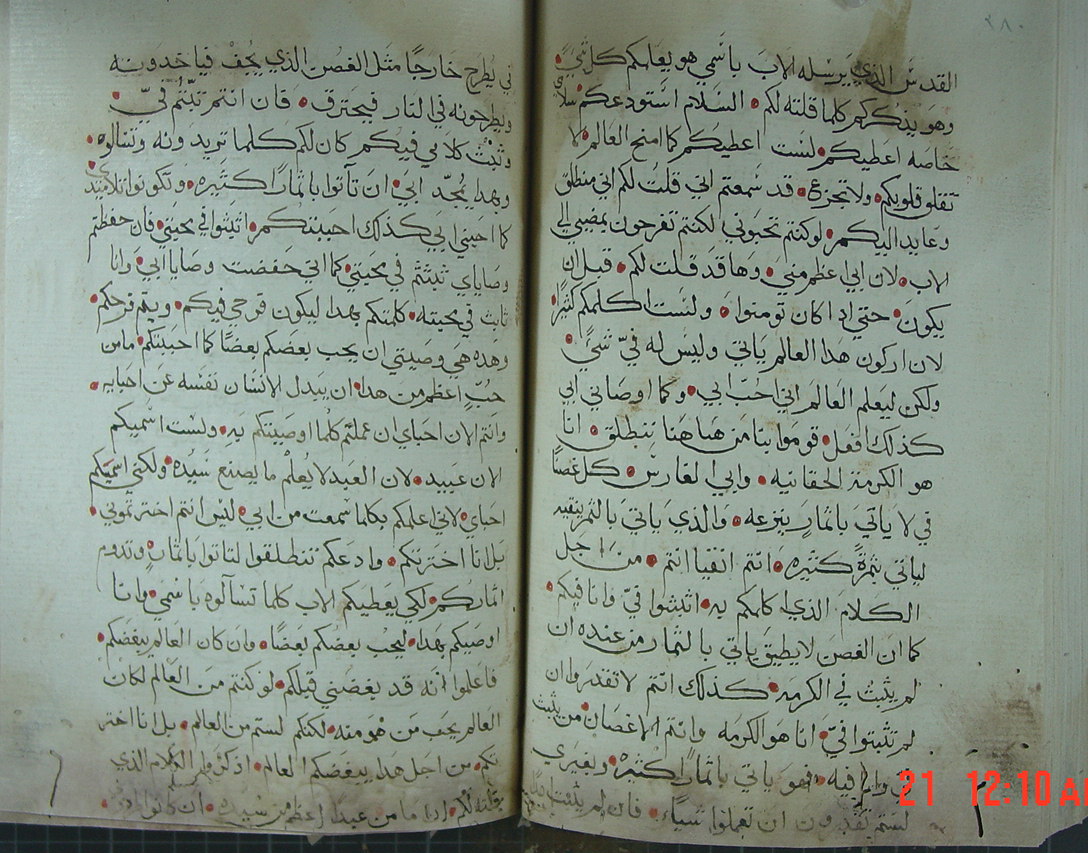 ٣٨٠
القدس الذي يرسله الاب باسمي هو يعلمكم كل شي
وهو يذكركم كلما قلته لكم • السلام استودعكم سلامي
خاصه اعطيكم • لست اعطيكم كما امنح العالم • لا
تقلق قلوبكم • ولا تجزع • قد سمعتم اني قلت لكم اني منطلق
وعايد اليكم • لو كنتم تحبوني لكنتم تفرحون بمضيي الي
الاب • لان ابي اعظم مني • وها قد قلت لكم • قبل ان
يكون • حتي ادا كان تومنوا • ولست اكلمكم كثيرا
لان اركون هدا العالم ياتي وليس له في شي •
ولكن ليعلم العالم اني احب ابي • وكما اوصاني ابي
كذلك افعل • قوموا بنا من هاهنا ننطلق • انا
هو الكرمة الحقانيه • وابي الفارس • كل غصنا
في لا ياتي باثمار ينزعه • والذي ياتي بالثمر ينقيه
لياتي بثمرة كثيره • انتم انقيا انتم • من اجل
الكلام الذي كلمكم به • اثبثوا في وانا فيكم •
كما ان الغصن لا يطيق ياتي بالثمار من عنده ان
لم يثبث في الكرمه • كذلك انتم لا تقدروا ان
لم تثبتوا في • انا هو الكرمه وانتم الاغصان • من يثبث
في وانا فيه • فهو ياتي باثمارا كثيره • وبغيري
لستم تقدرون ان تعملوا شياء • فان لم يثبت احدا
في يطرح خارجا مثل الغصن الذي يجف فياخدونه
ويطرحونه في النار فيحترق • فان انتم ثبتم في •
وثبث كلامي فيكم كان لكم كلما تريدونه وتسالوه •
وبهدا يمجد ابي • ان تاتوا باثمارا كثيره • وتكونوا تلاميذي
كما احبني ابي كذلك احببتكم • اثبثوا في محبتي • فان حفظتم
وصاياي ثبثتم في محبتي • كما اني حفضت وصايا ابي • وانا
ثابث في محبته • كلمتكم بهدا ليكون فرحي فيكم • ويتم فرحكم •
وهده هي وصيتي ان يحب بعضكم بعضا كما احببتكم • ما من
حب اعظم من هدا • ان يبدل الانسان نفسه عن احبايه •
وانتم الان احباي ان عملتم كلما اوصيتكم به • ولست اسميكم
الان عبيد • لان العبد لا يعلم ما يصنع سيده • ولكني اسميكم
احباي • لاني اعلمكم بكلما سمعت من ابي • ليس انتم اخترتموني •
بل انا اخترتكم • وادعكم تنطلقوا لتاتوا باثمار • وتدوم
اثماركم • لكي يعطيكم الاب كلما تسالوه باسمي • وانا
اوصيكم بهدا • ليحب بعضكم بعضا • وان كان العالم يبغضكم •
فاعلموا انه قد بغضني قبلكم • لو كنتم من العالم لكان
العالم يحب من هو منه • لكنكم لستم من العالم • بل انا اختر
تكم • من اجل هدا يبغضكم العالم • ادكروا الكلام الذي
قلته لكم • ما من عبدا اعظم من سيده • ان كانوا
21 12:10 A